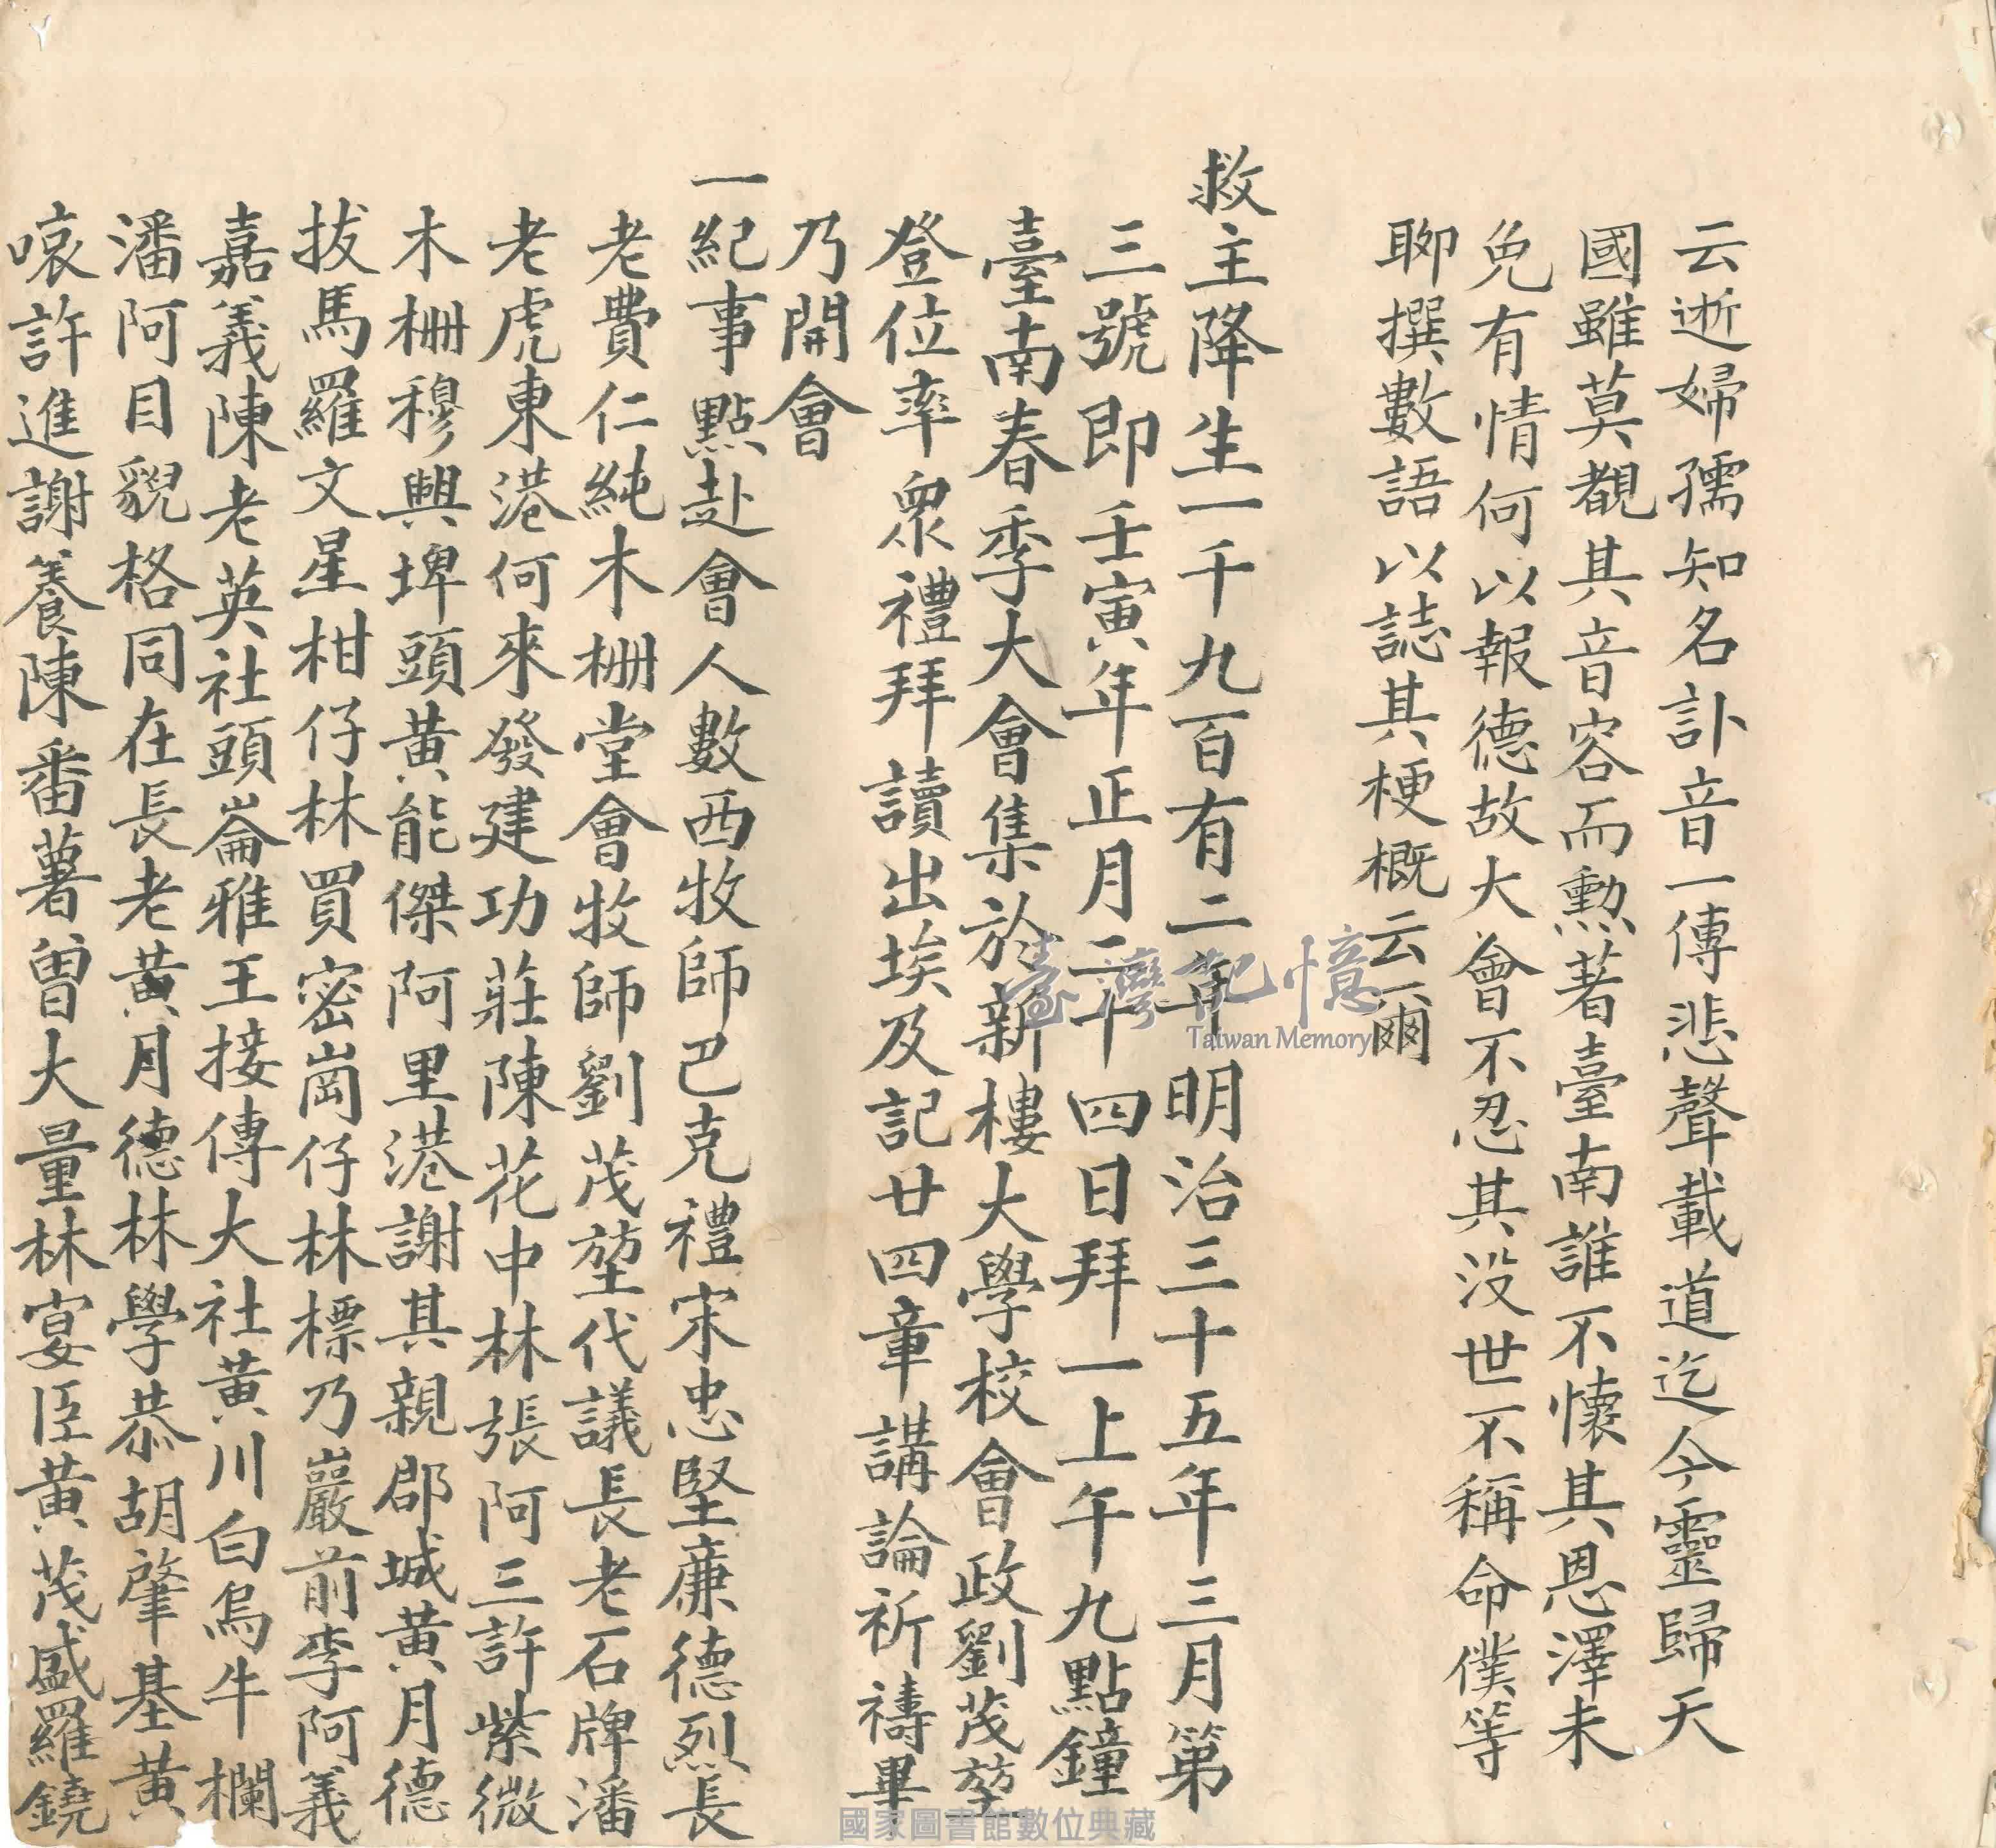 云逝婦孺知名訃音一傳悲聲載道迄今靈歸天
國雖莫覩其音容而勲著臺南誰不懷其恩澤未
免有情何以報德故大會不忍其没世不稱命僕等
聊撰數語以誌其梗概云爾
救主降生一千九百有二年明治三十五年三月第
三號即壬寅年正月二十四日拜一上午九點鐘
臺南春季大會集於新樓大學校會政劉茂堃
登位率衆禮拜讀出埃及記廿四章講論祈禱畢
乃開會
一紀事點赴會人數西牧師巴克禮宋忠堅廉德烈長
老費仁純木柵堂會牧師劉茂堃代議長老石牌潘
老虎東港何來發建功莊陳花中林張阿三許紫微
木柵穆興埤頭黄能傑阿里港謝其親郡城黄月德
拔馬羅文星柑仔林林買密崗仔林林標乃巖前李阿義
嘉義陳老英社頭崙雅王接傳大社黄川白烏牛欄
潘阿目貎格同在長老黄月德林學恭胡肇基黄
喰許進謝養陳番薯曾大量林宴臣黄茂盛羅鐃
臺灣記憶
Taiwan Memory
國家圖書館數位典藏